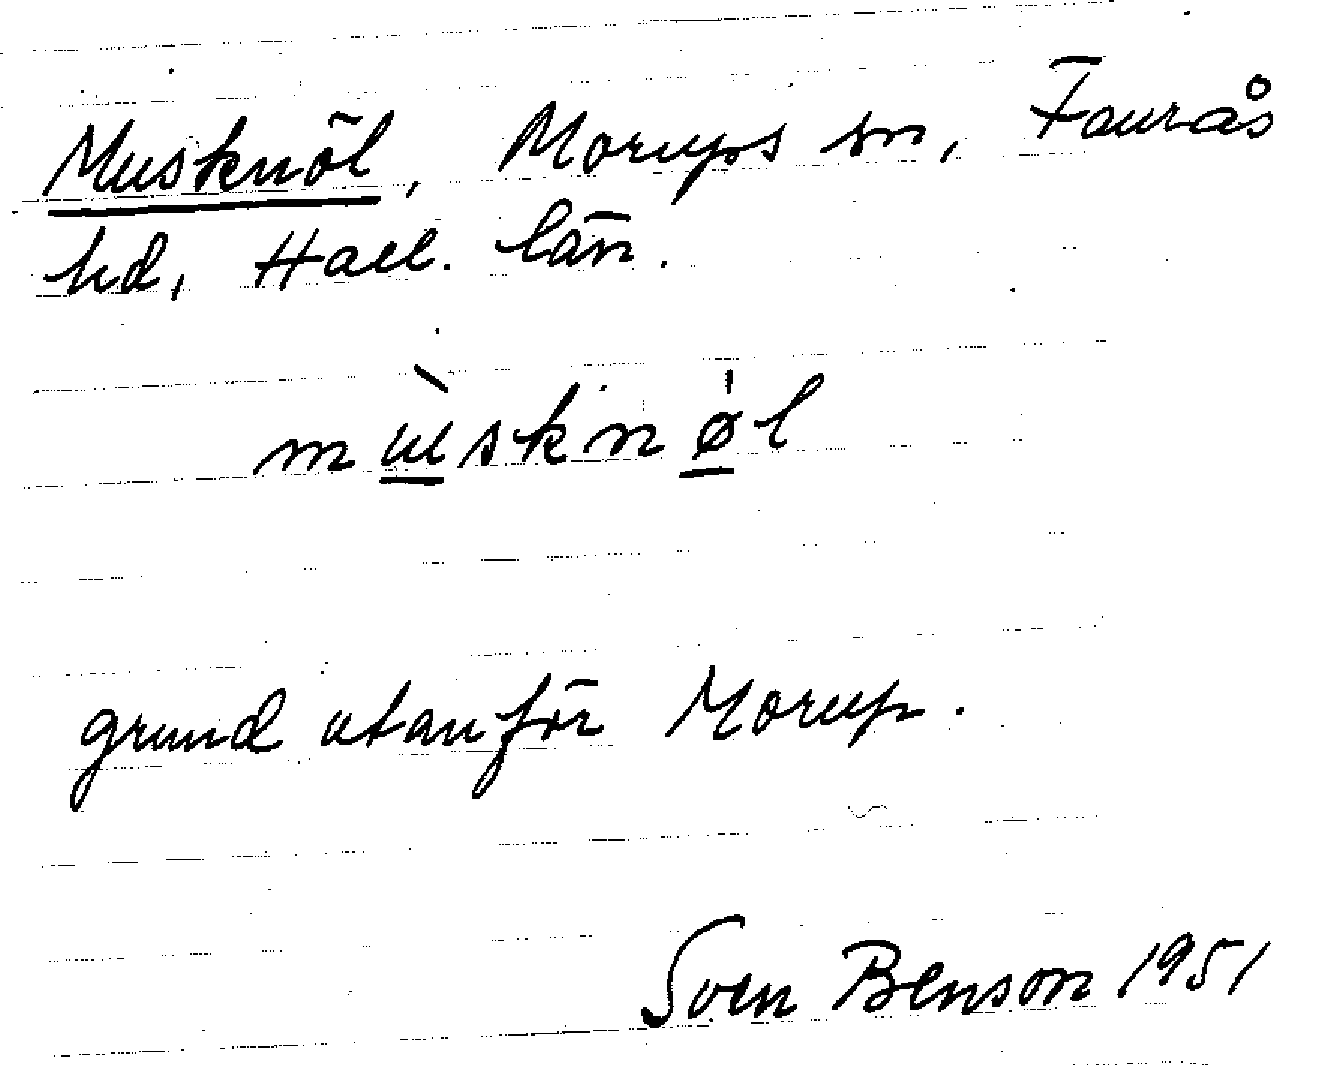 Musknöl, Morups sn, Faurås
hd, Hall. län.
mùsknø̍l
grund utanför Morup.
Sven Benson 1951